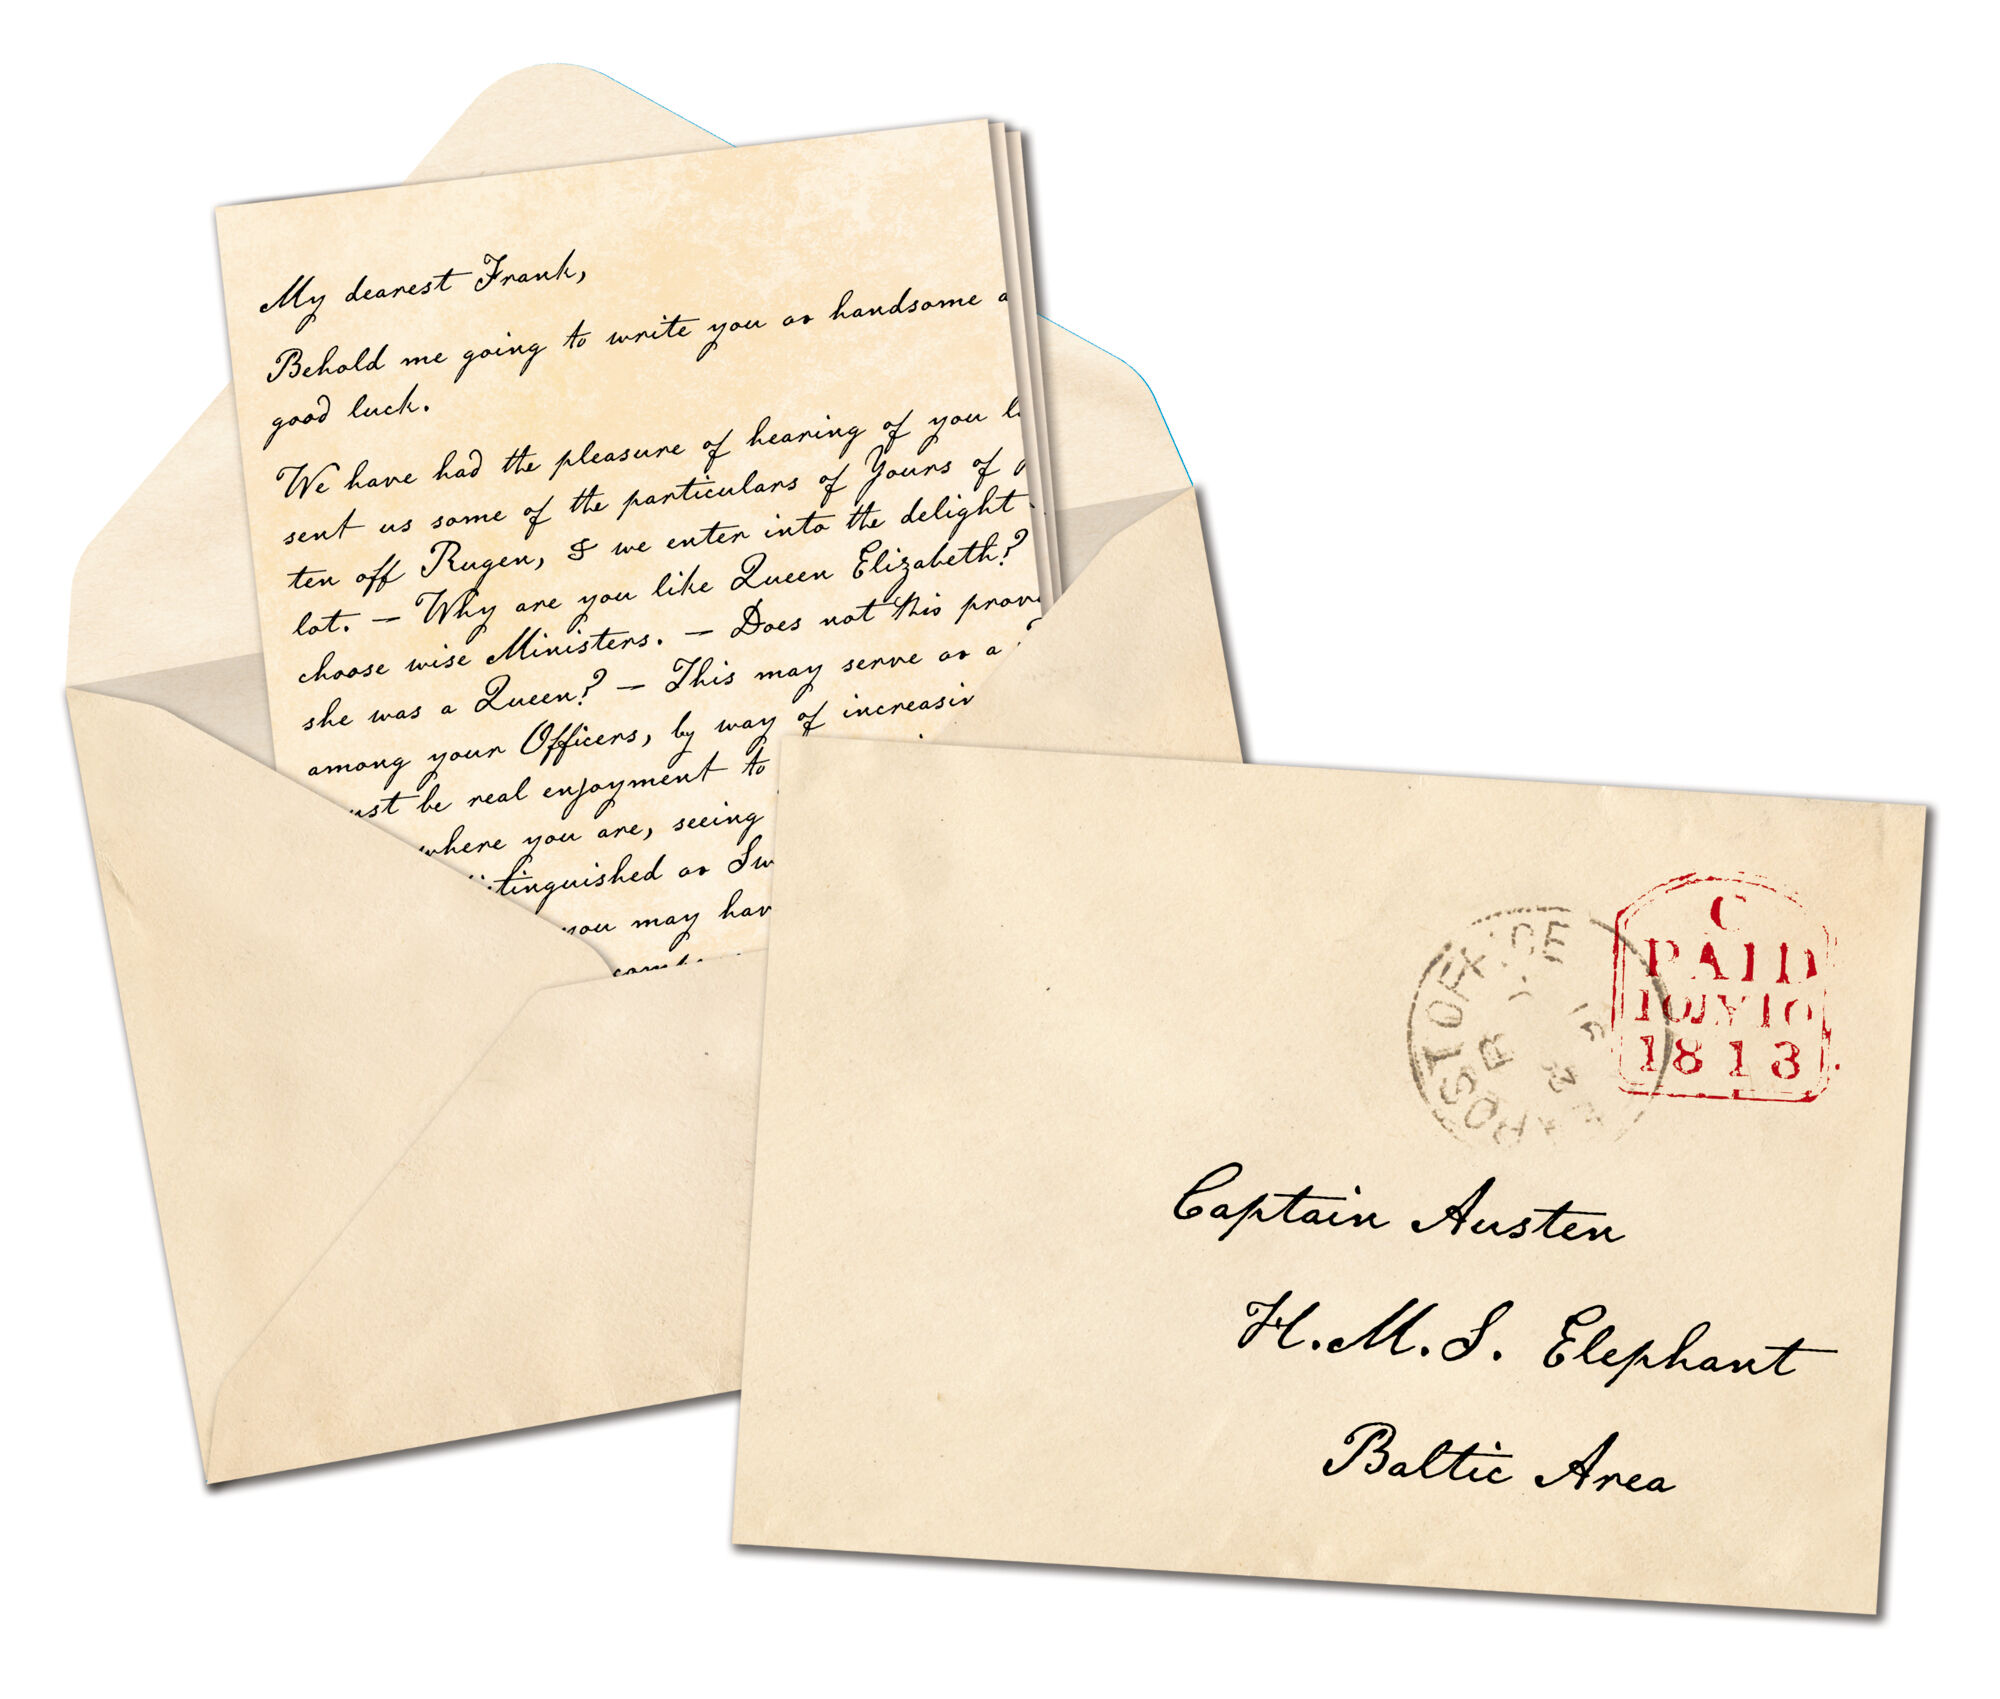 My dearest Frank,
Behold me going to write you as handsome a
good luck.
We have had the pleasure of hearing of you
sent us some of the particulars of Yours of
ten off Rugen, & we enter into the delight
lot. — Why are you like Queen Elizabeth?
choose wise Ministers. — Does not this prov
she was a Queen? — This may serve as a
among your Officers, by way of increasin
ust be real enjoyment to
where you are, seeing
tinguished as Sw
you may hav
C
PAID
10 JY 10
1813
POST OFFICE
Captain Austen
H.M.S. Elephant
Baltic Area